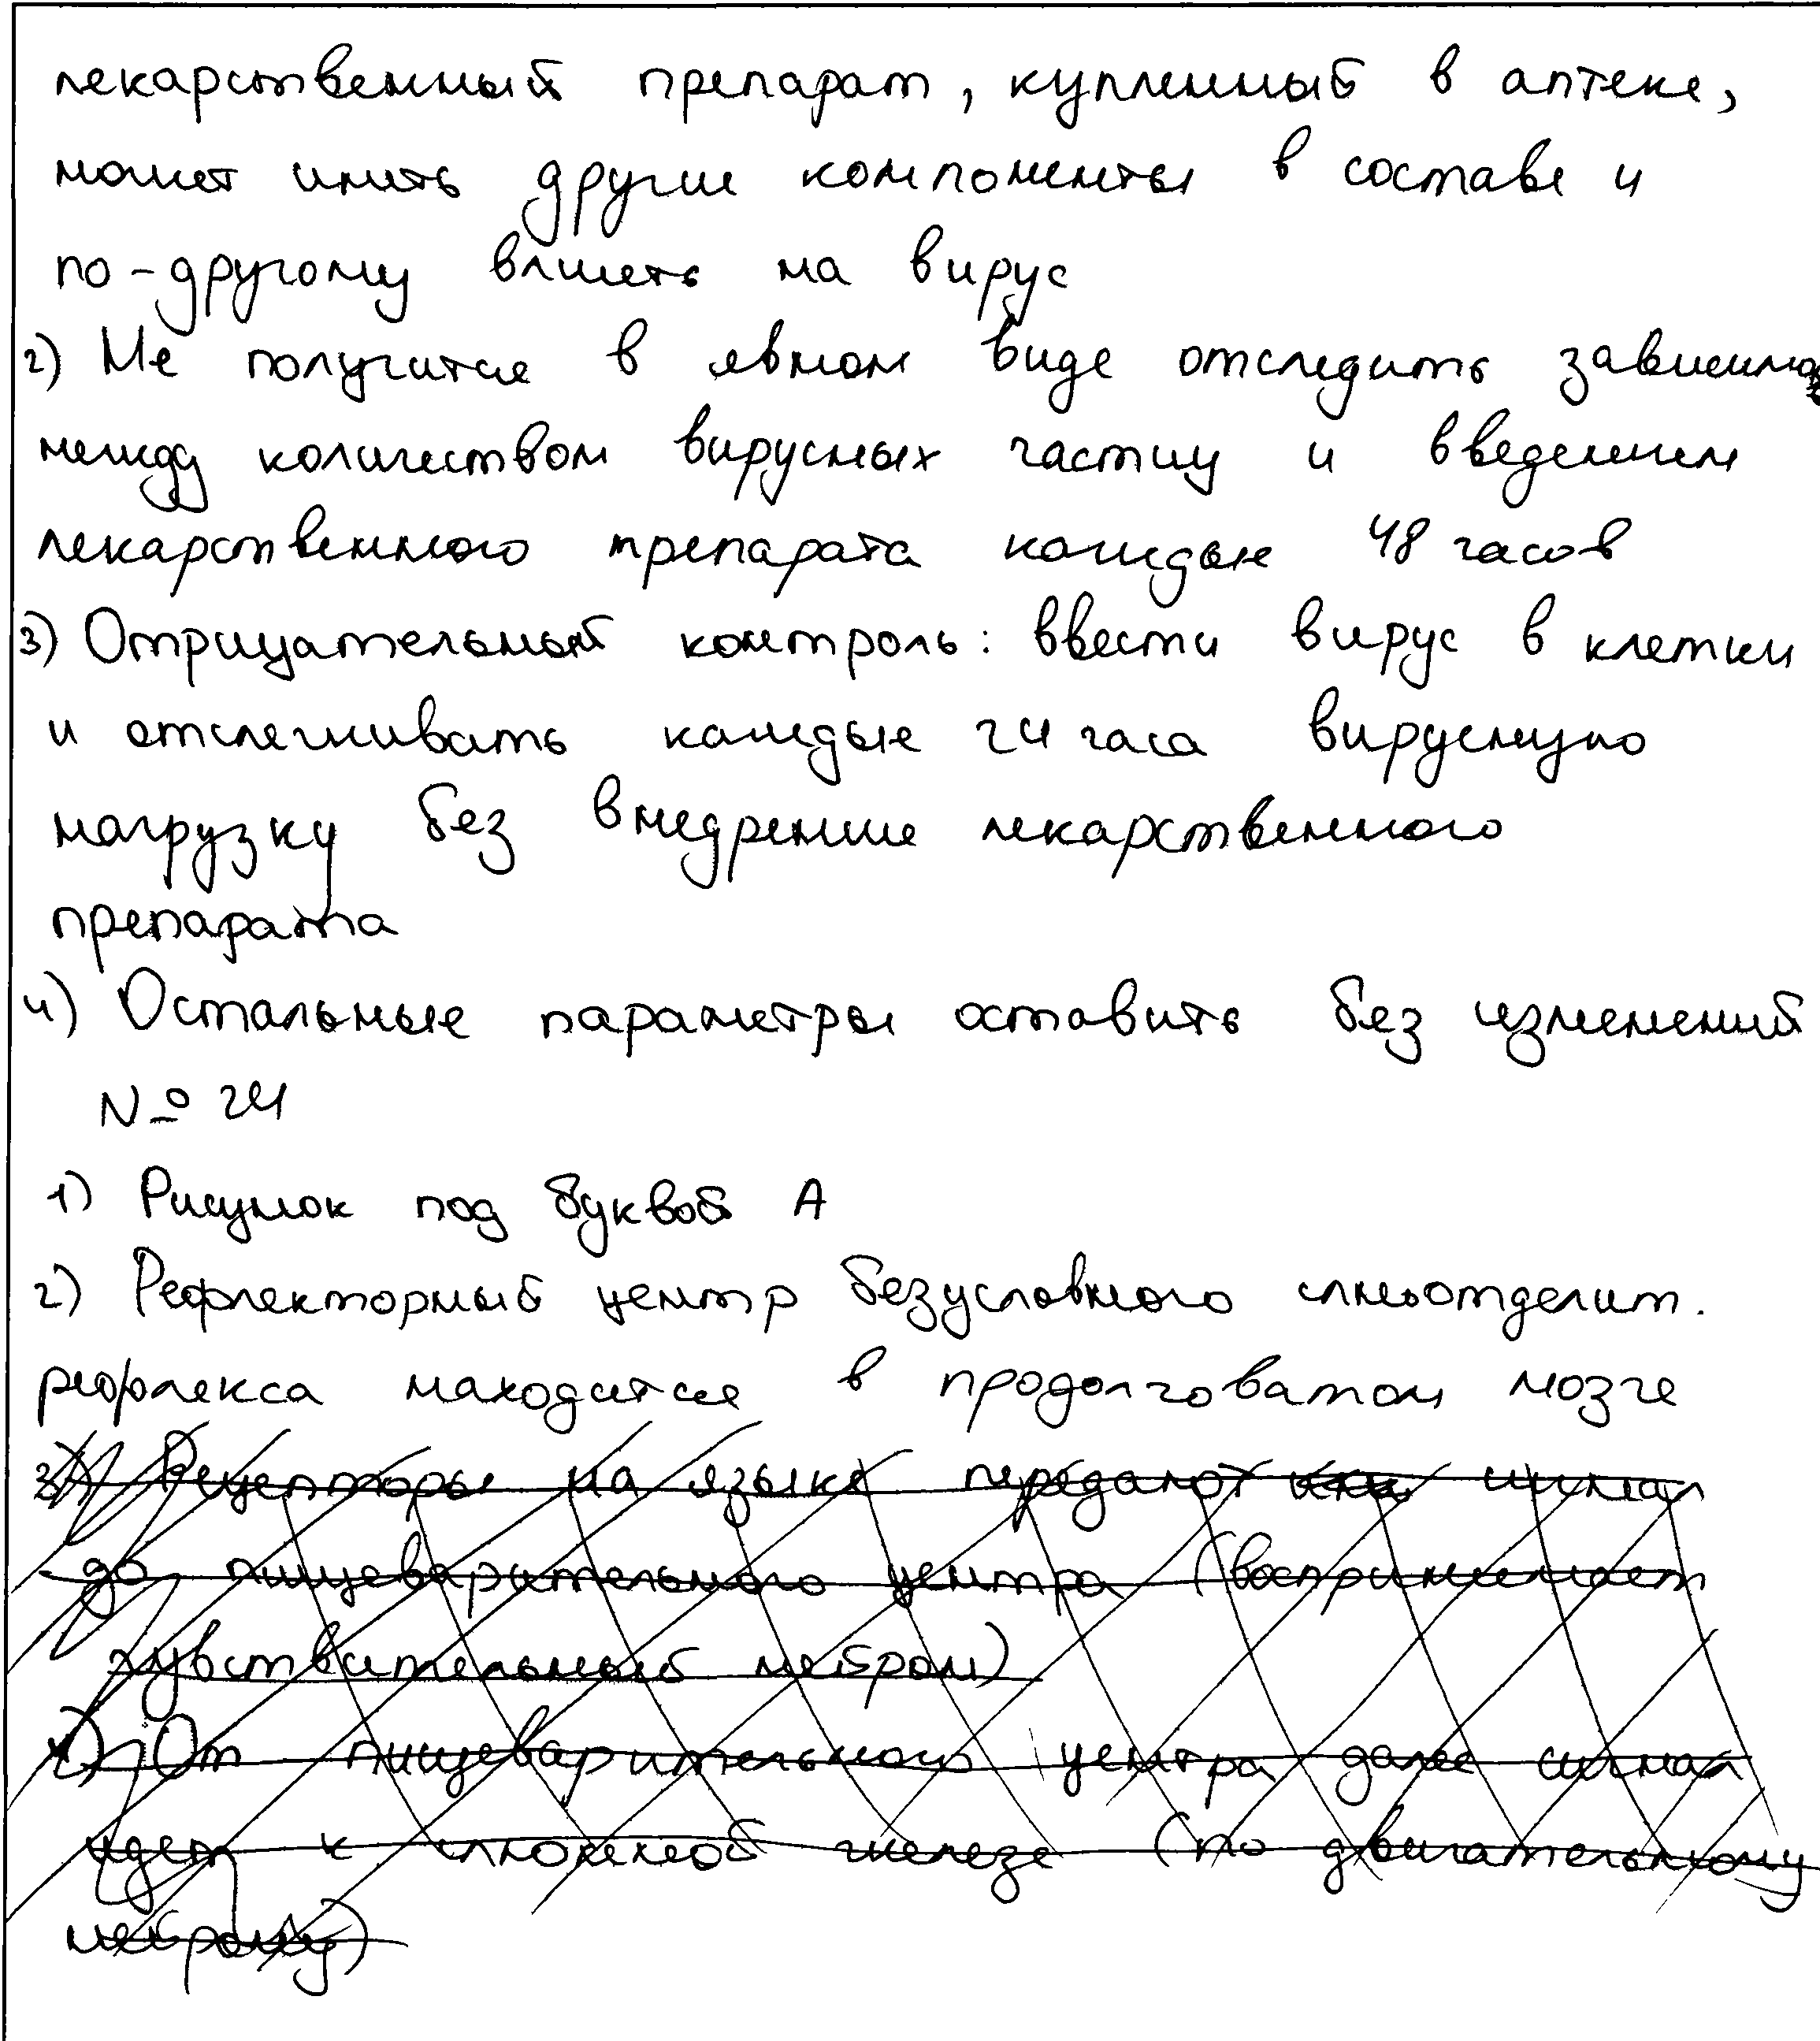 лекарственный препарат, купленный в аптеке,
может имить другие компоненты в составе и
по-другому влиять на вирус
2) Не получится в явном виде отследить
между количеством вирусных частиц и введением
лекарственного препарата каждые 48 часов
3) Отрицательный контроль: ввести вирус в клетки
и отслеживать каждые 24 часа вирусную
нагрузку без внедрения лекарственного
препарата
4) Остальные параметры оставить без изменений
№ 24
1) Рисунок под буквой А
2) Рефлекторный центр безусловного слюноотделит.
рефлекса находится в продолговатом мозге
3) Рецепторы на языке передают сигнал
до пищеварительного центра (воспринимает
чувствительный нейрон)
4) От пищеварительного центра далее сигнал
идет к слюнной железе (по двигательному
нейрону)